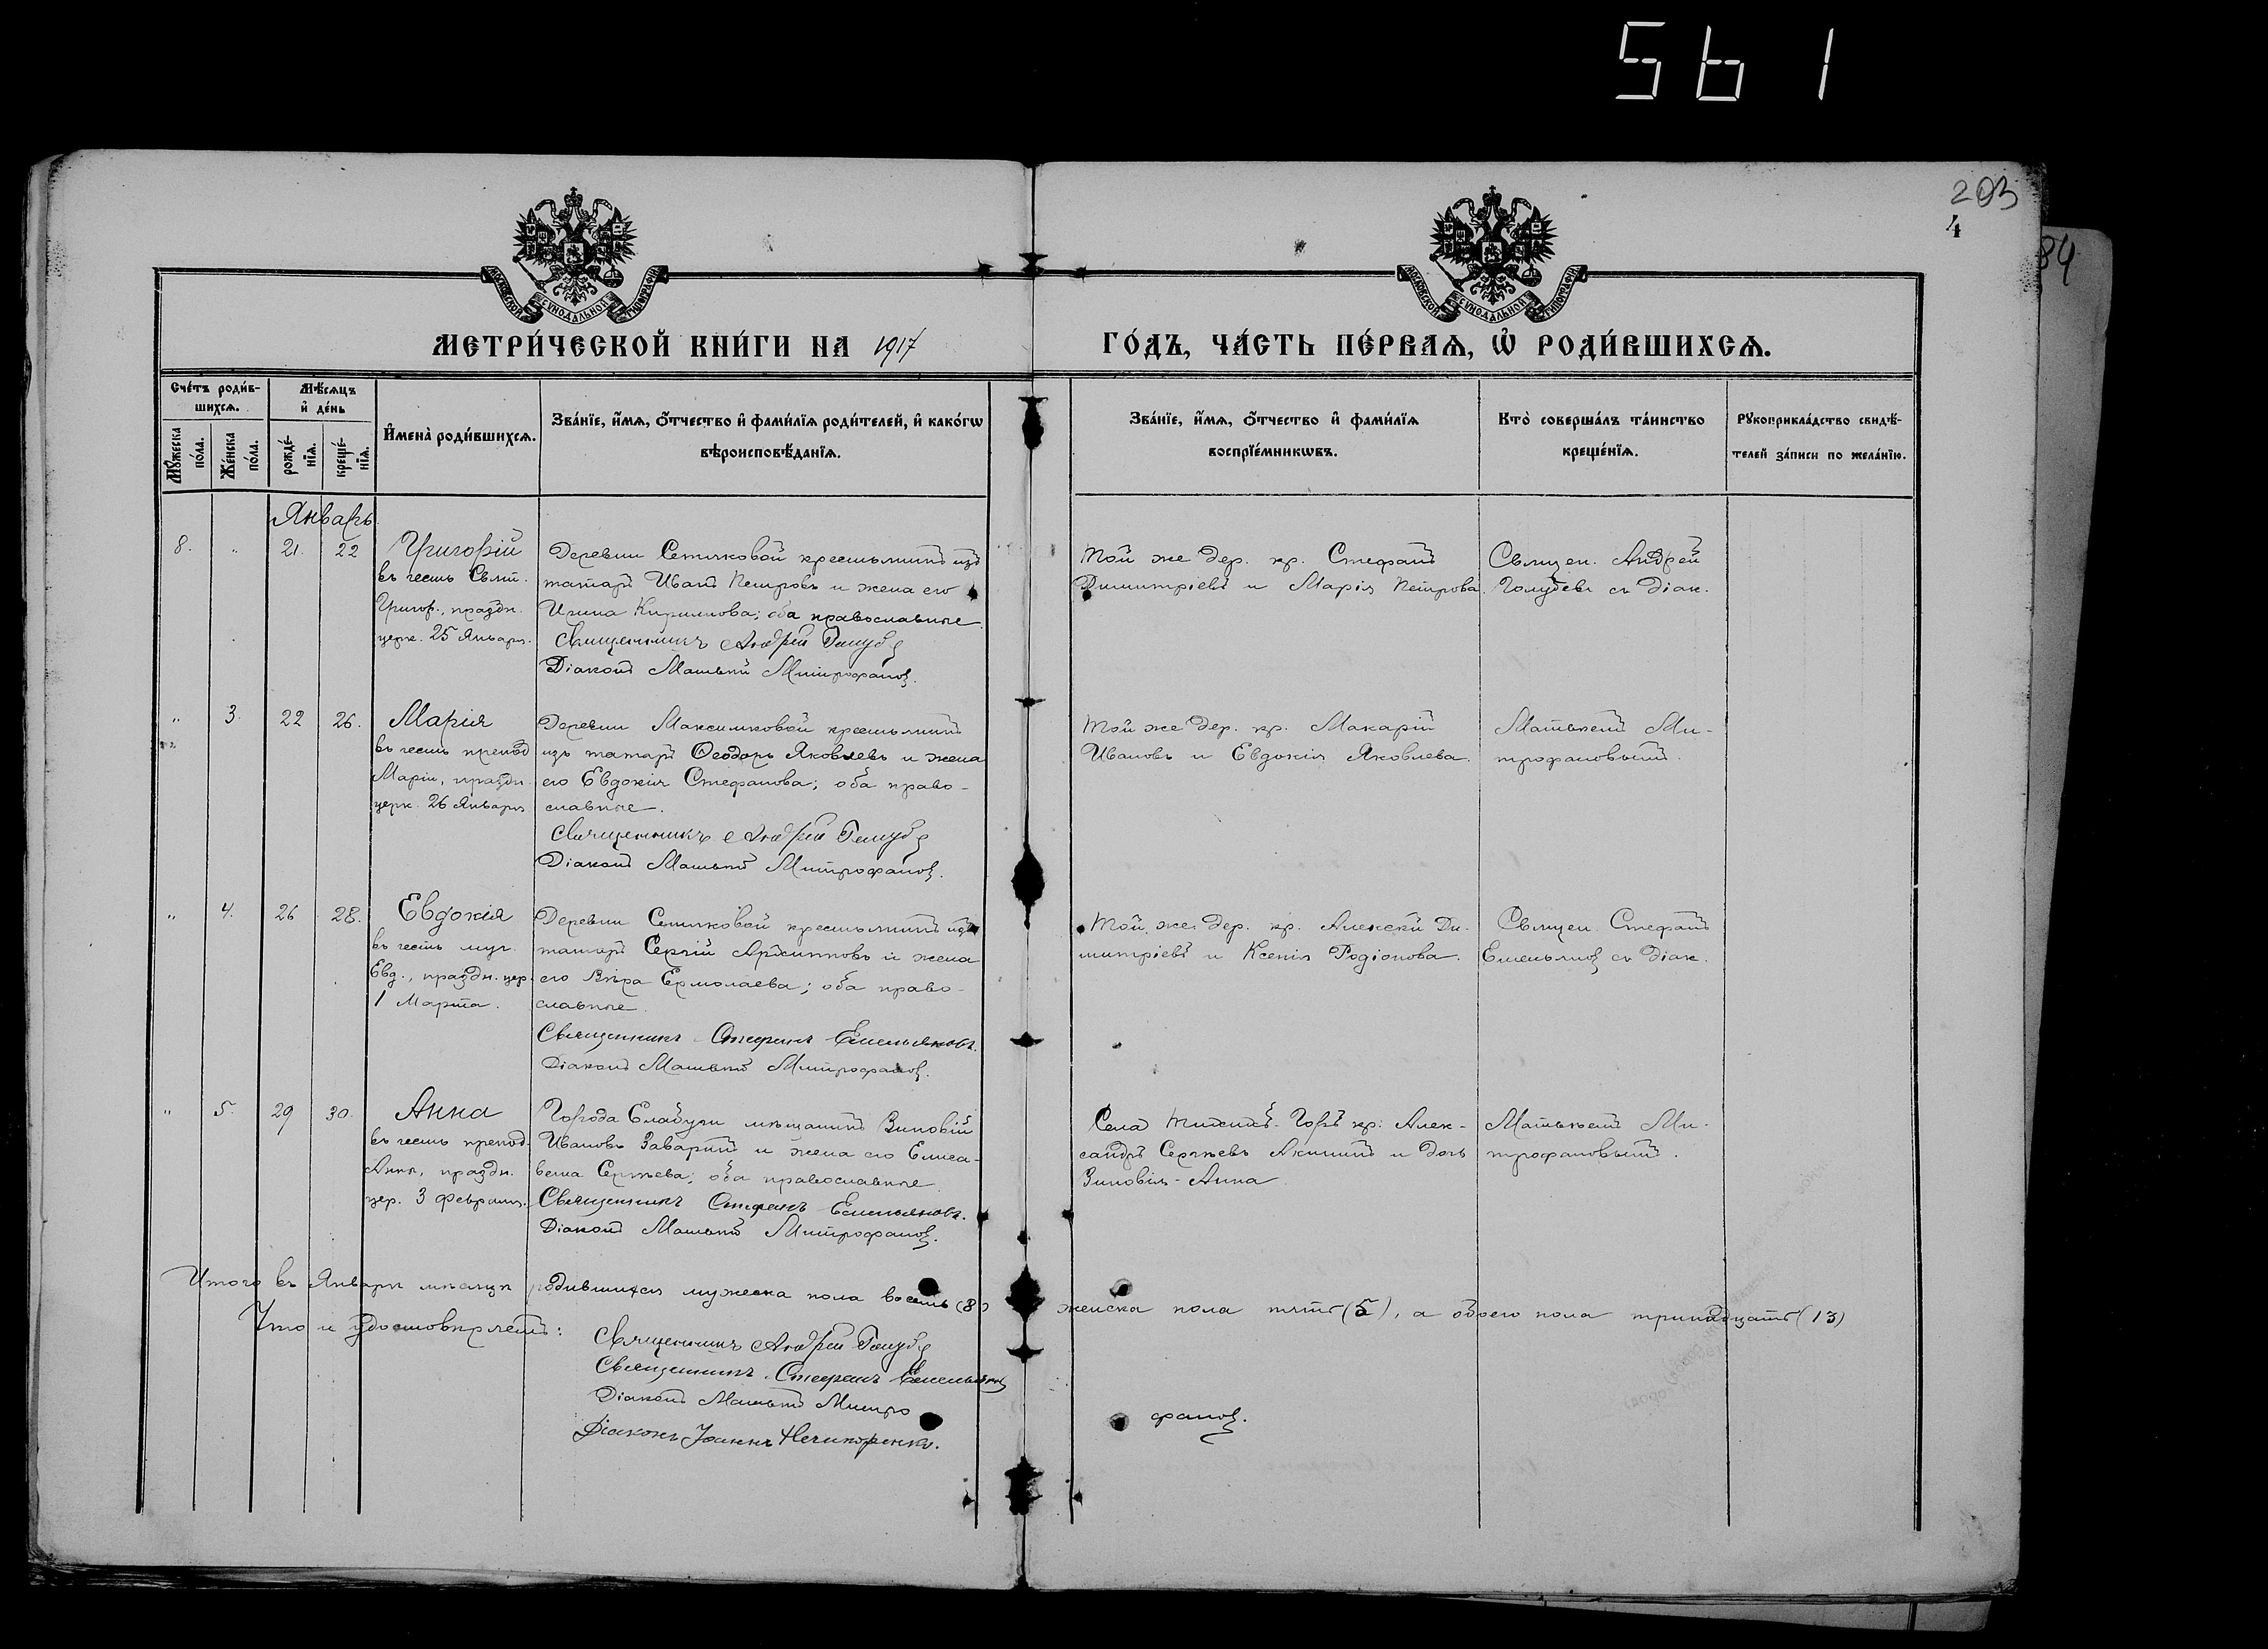 561
203
4
84
МОСКОВСКОЙ СѴНОДАЛЬНОЙ ТИПОГРАФІИ
МОСКОВСКОЙ СѴНОДАЛЬНОЙ ТИПОГРАФІИ
МЕТРИ́ЧЕСКОЙ КНИ́ГИ НА 1917
ГО́ДЪ, ЧА́СТЬ ПЕ́РВАѦ, Ѡ҆ РОДИ́ВШИХСѦ.
Сче́тъ роди́в-
шихсѧ.
Мꙋ́жеска по́ла.
Же́нска по́ла.
Мѣ́сѧцъ
и҆ де́нь
рожде́-нїѧ.
креще́-нїѧ.
И҆мена̀ роди́вшихсѧ.
Зва́нїе, и҆́мѧ, ѻ҆́тчество и҆ фами́лїѧ роди́телей, и҆ како́гѡ
вѣроисповѣ́данїѧ.
Зва́нїе, и҆́мѧ, ѻ҆́тчество и҆ фами́лїѧ
воспрїе́мникѡвъ.
Кто̀ соверша́лъ та́инство
креще́нїѧ.
Рꙋкоприкла́дство свидѣ́-
телей за́писи по жела́нїю.
Январь
8. " 21. 22 Григорій
въ честь Свят.
Григор., праздн.
церк. 25 Января.
Деревни Сетяковой крестьянинъ изъ
татаръ Иванъ Петровъ и жена его
Ирина Кириллова; оба православные.
Священникъ Андрей Голубе
Діаконъ Матѳей Митрофанов.
Той же дер. кр. Стефанъ
Димитріевъ и Марія Петрова.
Священ. Андрей
Голубевъ съ діак.
" 3. 22 26. Марія
въ честь препод
Маріи, праздн.
церк. 26 Января
Деревни Максимковой крестьянинъ
изъ татаръ Ѳеодоръ Яковлевъ и жена
его Евдокія Стефанова; оба право-
славные.
Священникъ Андрей Голубе
Діаконъ Матѳей Митрофанов.
Той же дер. кр. Макарій
Ивановъ и Евдокія Яковлева.
Матвѣемъ Ми-
трофановымъ.
" 4. 26 28. Евдокія
въ честь муч.
Евд., праздн. цер.
1 Марта.
Деревни Сетяковой крестьянинъ изъ
татаръ Сергій Архиповъ и жена
его Вѣра Ермолаева; оба право-
славные.
Священникъ Стефанъ Емельяновъ.
Діаконъ Матѳей Митрофанов.
Той же дер. кр. Алексѣй Ди-
митріевъ и Ксенія Родіонова.
Священ. Стефанъ
Емельянов съ діак.
" 5. 29 30. Анна
въ честь препод.
Анны, праздн.
цер. 3 Февраля.
Города Елабуги мѣщанинъ Зиновій
Ивановъ Заваринъ и жена его Елиса-
вета Сергѣева; оба православные.
Священникъ Стефанъ Емельяновъ.
Діаконъ Матѳей Митрофанов.
Села Тихихъ-Горъ кр. Алек-
сандръ Сергѣевъ Акининъ и дочь
Зиновія - Анна
Матвѣемъ Ми-
трофановымъ.
Итого въ Январѣ мѣсяцѣ родившихся мужеска пола восемь (8) женска пола пять (5), а обоего пола тринадцать (13)
Что и удостовѣряемъ:
Священникъ Андрей Голубе
Священникъ Стефанъ Емельянов
Діаконъ Матѳей Митро фанов.
Діаконъ Іоаннъ